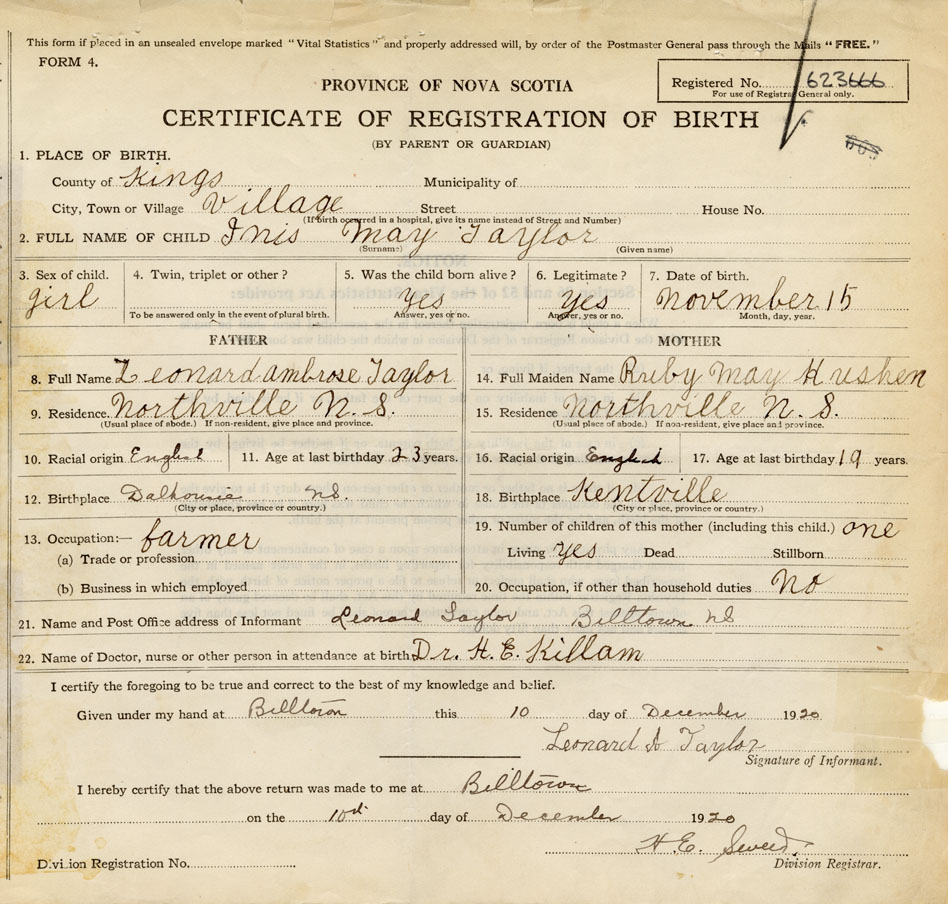 This form if placed in an unsealed envelope marked "Vital Statistics" and properly addressed will, by order of the Postmaster General pass through the Mails "FREE."
FORM 4.
PROVINCE OF NOVA SCOTIA
Registered No. 623666
For use of Registrar General only.
CERTIFICATE OF REGISTRATION OF BIRTH
(BY PARENT OR GUARDIAN)
1. PLACE OF BIRTH.
County of Kings Municipality of
City, Town or Village Village Street House No.
(If birth occurred in a hospital, give its name instead of Street and Number)
2. FULL NAME OF CHILD Inis May Taylor
(Surname) (Given name)
3. Sex of child. 4. Twin, triplet or other? 5. Was the child born alive? 6. Legitimate? 7. Date of birth.
girl yes yes November 15
To be answered only in the event of plural birth. Answer, yes or no. Answer, yes or no. Month, day, year.
FATHER MOTHER
8. Full Name Leonard ambrose Taylor 14. Full Maiden Name Ruby May
9. Residence. Northville N.S. 15. Residence Northville N.S.
(Usual place of abode.) If non-resident, give place and province. (Usual place of abode.) If non-resident, give place and province.
10. Racial origin English 11. Age at last birthday 23 years. 16. Racial origin English 17. Age at last birthday 19 years.
12. Birthplace Dalhousie NS. 18. Birthplace Kentville
(City or place, province or country.) (City or place, province or country.)
13. Occupation:— farmer 19. Number of children of this mother (including this child.) one
(a) Trade or profession Living yes Dead Stillborn
(b) Business in which employed 20. Occupation, if other than household duties No
21. Name and Post Office address of Informant Leonard Taylor Billtown NS
22. Name of Doctor, nurse or other person in attendance at birth Dr. H. E. Killam
I certify the foregoing to be true and correct to the best of my knowledge and belief.
Given under my hand at Billtown this 10 day of December 1920
Leonard A Taylor
Signature of Informant.
I hereby certify that the above return was made to me at Billtown
on the 10th day of December 1920
H. E.
Division Registrar.
Division Registration No.